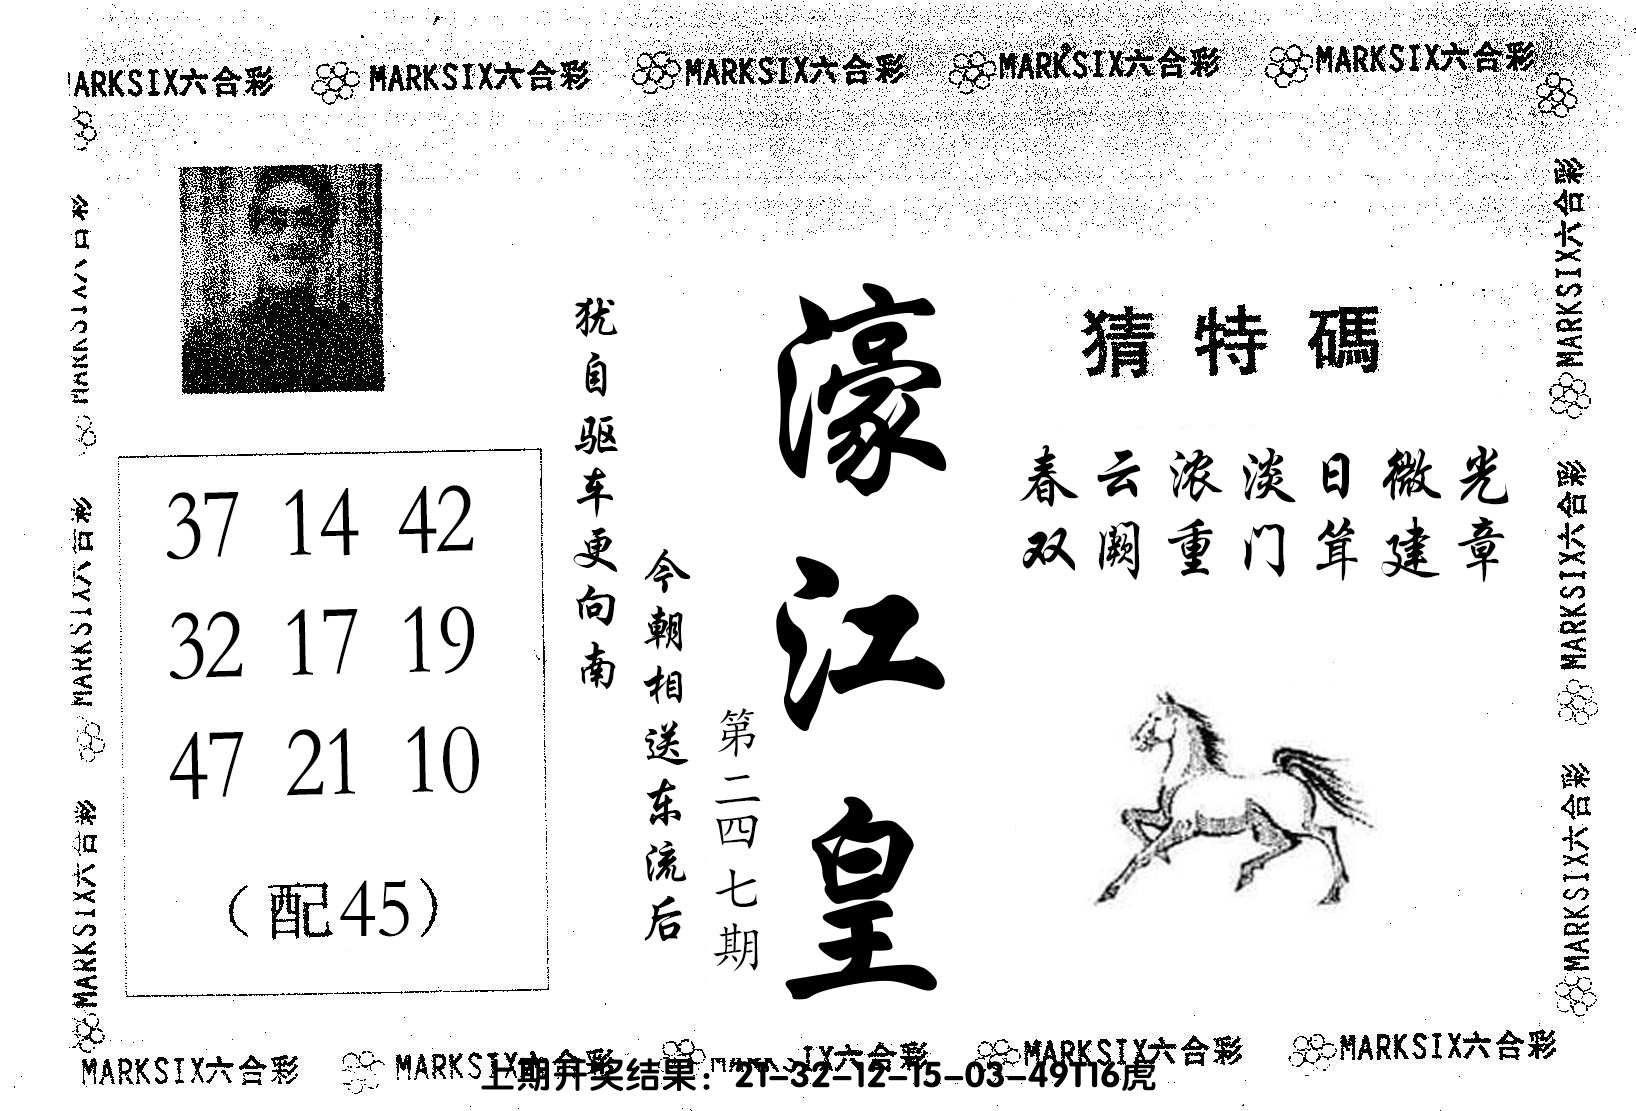 MARKSIX六合彩 MARKSIX六合彩 MARKSIX六合彩 MARKSIX六合彩 MARKSIX六合彩
猜特碼
春云浓淡日微光
双阙重门耸建章
濠江皇
第二四七期
今朝相送东流后
犹自驱车更向南
37 14 42
32 17 19
47 21 10
（配45）
MARKSIX六合彩
MARKSIX六合彩
MARKSIX六合彩
MARKSIX六合彩
MARKSIX六合彩
MARKSIX六合彩
MARKSIX六合彩 MARKSIX六合彩 MARKSIX六合彩 MARKSIX六合彩 MARKSIX六合彩
上期开奖结果：21-32-12-15-03-49T16虎